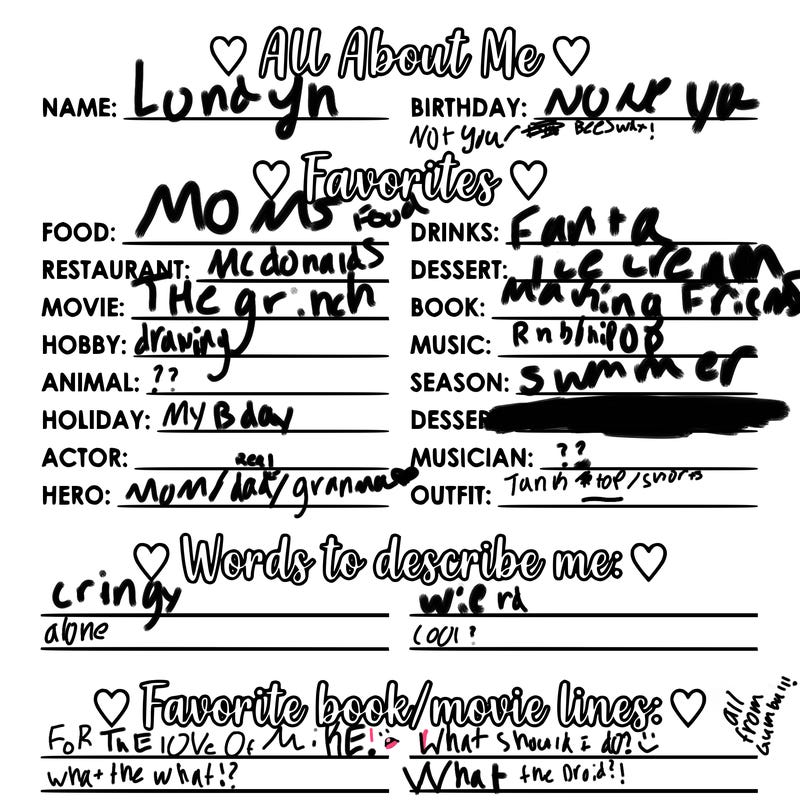 All About Me
NAME: Londyn BIRTHDAY: NONE ya
Not your Beeswax!
Favorites
FOOD: MOMS FOOD DRINKS: Fanta
RESTAURANT: Mcdonalds DESSERT: Ice cream
MOVIE: THe grinch BOOK: Making Friends
HOBBY: drawing MUSIC: Rnb/hipop
ANIMAL: ?? SEASON: summer
HOLIDAY: My Bday DESSER
ACTOR: MUSICIAN: ??
real
HERO: Mom/dad/granmas OUTFIT: Tank top/shorts
Words to describe me:
cringy wierd
alone cool?
Favorite book/movie lines:
all from Gumball!!!
FOR ThE lOVe Of MiKE! What Should i do?!
what the what!? What the Droid?!